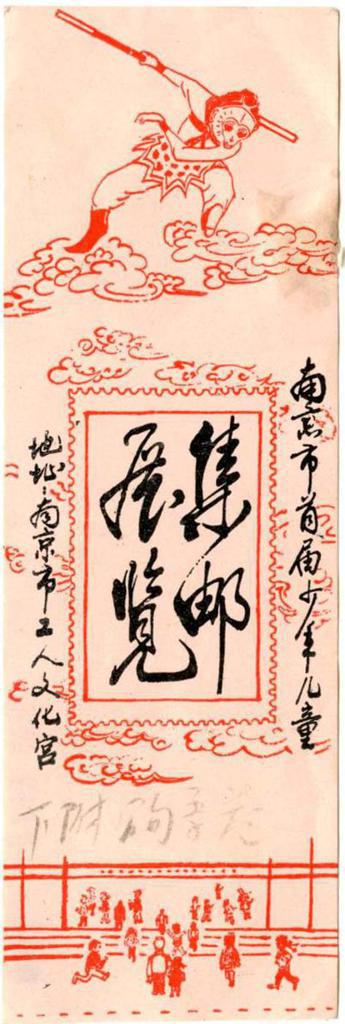 南京市首届少年儿童
集邮
展览
地址：南京市工人文化宫